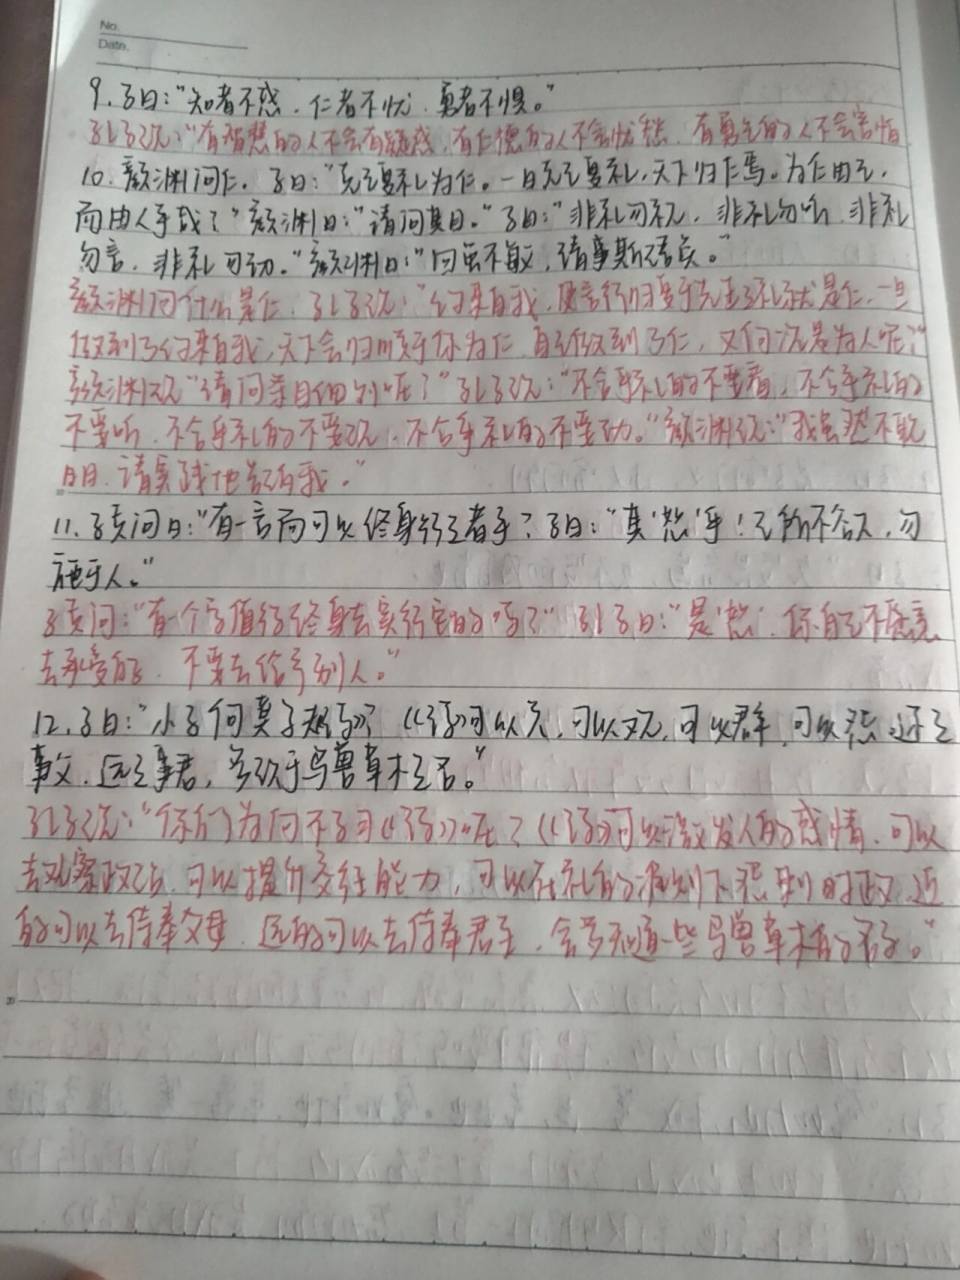 No.
Date.
9.子曰:"知者不惑、仁者不忧、勇者不惧。"
孔子说:"有智慧的人不会有疑惑,有仁德的人不会忧愁、有勇气的人不会害怕
10.颜渊问仁。子曰:"克己复礼为仁。一日克己复礼,天下归仁焉。为仁由己,
而由人乎哉?"颜渊曰:"请问其目。"子曰:"非礼勿视,非礼勿听,非礼
勿言,非礼勿动。"颜渊曰:"回虽不敏,请事斯语矣。"
颜渊问什么是仁,孔子说:"约束自我,使言行归于先王之礼就是仁,一旦
做到了约束自我,天下会归顺于你为仁,自己做到了仁,又何况是为人呢?"
颜渊说"请问条目细则呢?"孔子说:"不合乎礼的不要看,不合乎礼的
不要听、不合乎礼的不要说、不合乎礼的不要动。"颜渊说:"我虽然不聪
明,请实践地告诉我。"
11.子贡问曰:"有一言而可以终身行之者乎?子曰:"其'恕'乎!己所不欲,勿
施于人。"
子贡问:"有一个字值得终身去实行它的吗?"孔子曰:"是'恕',你自己不愿意
去承受的,不要去给予别人。"
12.子曰:"小子何莫学夫《诗》?《诗》可以兴,可以观,可以群,可以怨,迩之
事父、远之事君,多识于鸟兽草木之名。"
孔子说:"你们为何不学习《诗》呢?《诗》可以激发人的感情、可以
去观察政治,可以提升交往能力,可以在礼的准则下怨刺时政,近
的可以去侍奉父母,远的可以去侍奉君主,会多知道一些鸟兽草木的名字。"